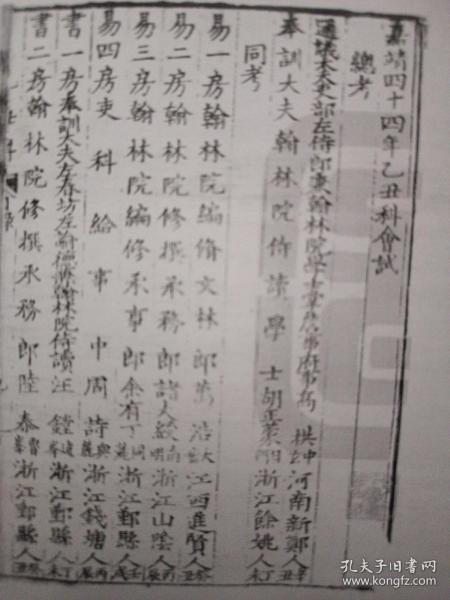 嘉靖四十四年乙丑科會試
總考
通議大夫吏部左侍郎兼翰林院學士掌詹事府事高 拱 河南新鄭人辛丑
奉訓大夫翰林院侍讀學士胡正蒙 浙江餘姚人丁未
同考
易一房翰林院編脩文林郎萬浩 江西進賢人癸丑
易二房翰林院修撰承務郎諸大綬 浙江山陰人丙辰
易三房翰林院編修承事郎余有丁 浙江鄞縣人壬戌
易四房吏科給事中周詩 浙江錢塘人丙辰
書一房奉訓大夫左春坊左諭德兼翰林院侍讀汪鏜 浙江鄞縣人丁未
書二房翰林院修撰承務郎陸泰 浙江鄞縣人癸丑
孔夫子旧书网